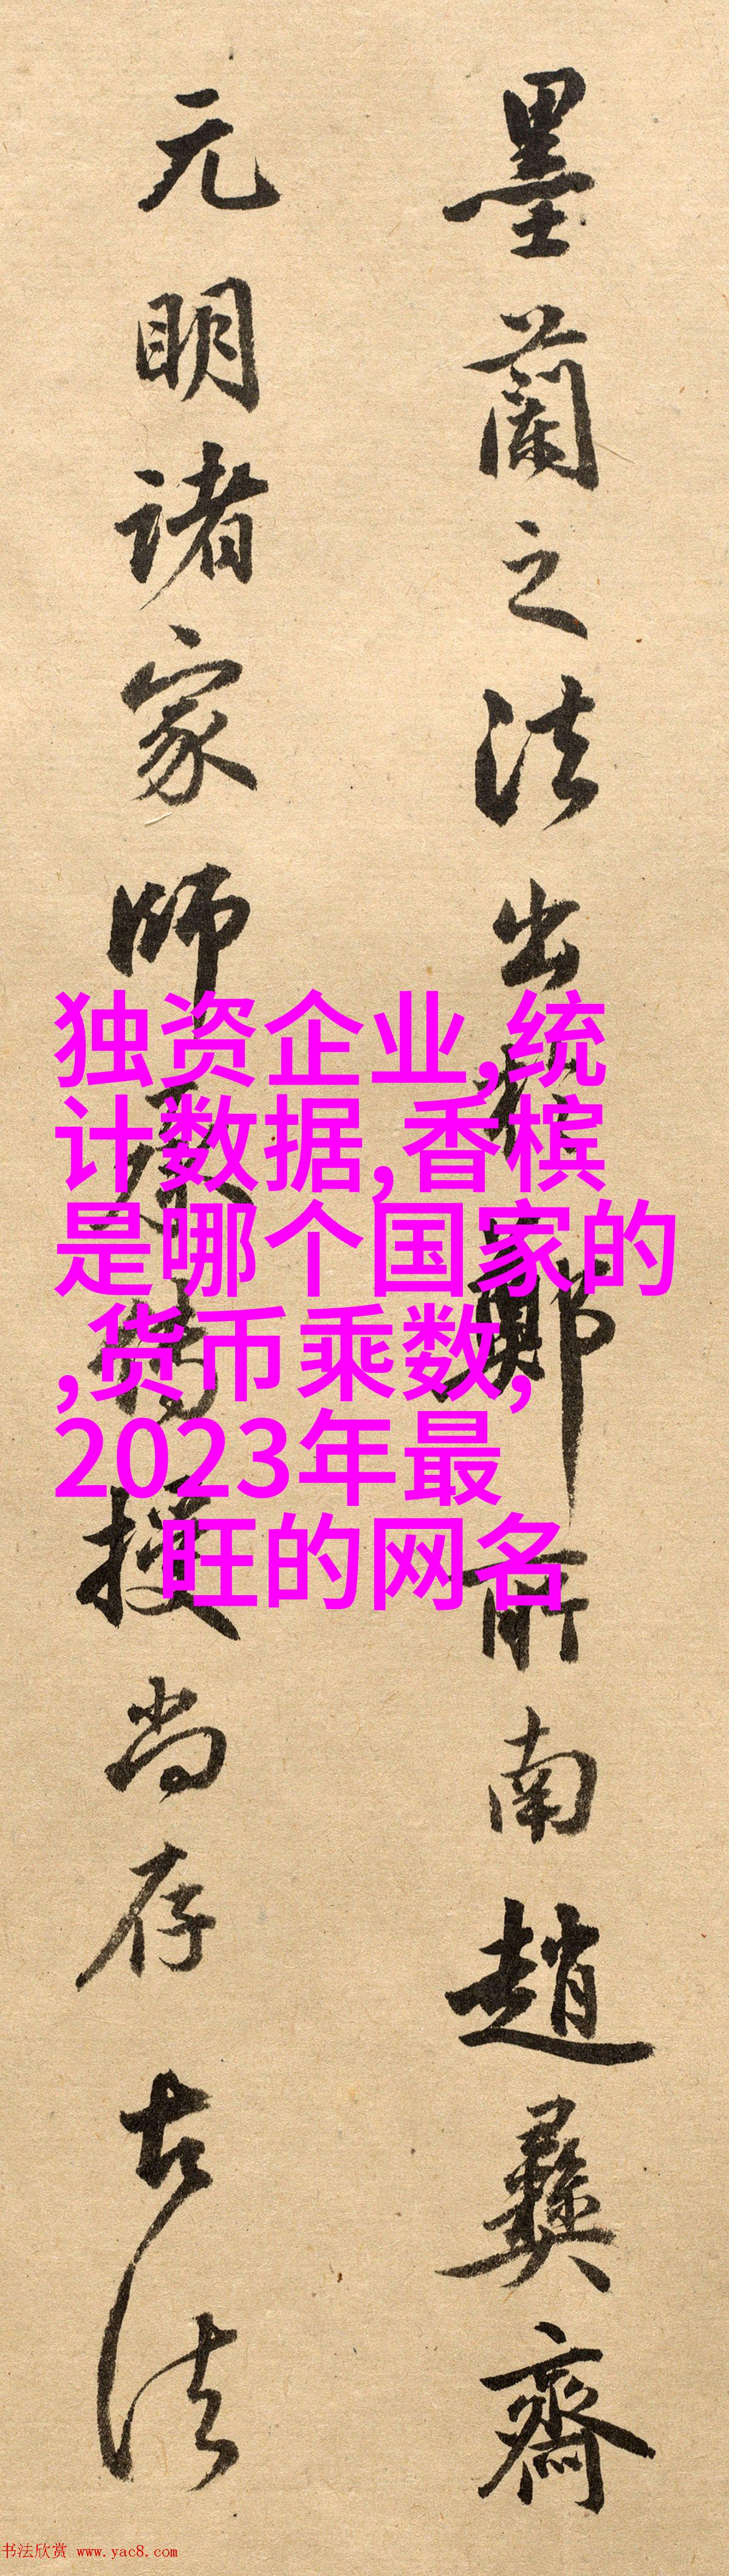 墨蘭之法出於鄭所南趙彝齋
元明諸家師承傳授尚存古法
独资企业,统
计数据,香槟
是哪个国家的
,货币乘数,
2023年最
旺的网名
书法欣赏 www.yac8.com